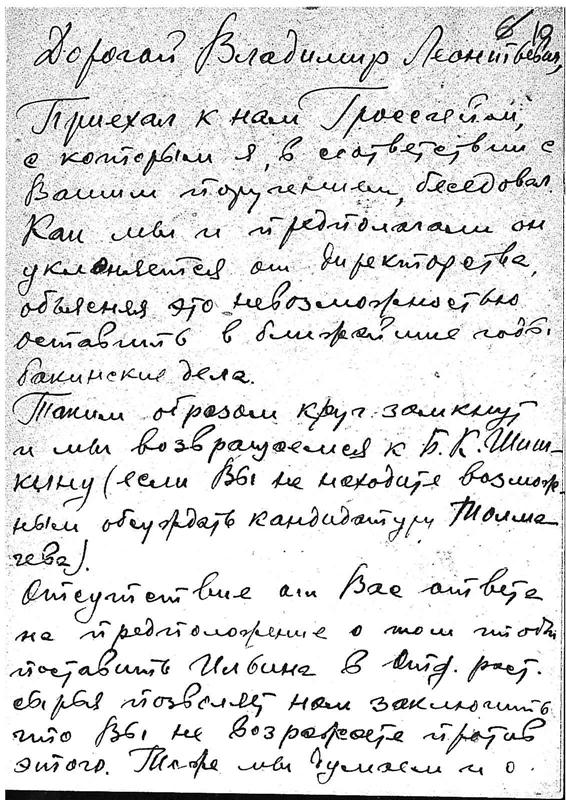 6 19
Дорогой Владимир Леонтьевич,
Приехал к нам Гроссгейм,
с которым я, в соответствии с
Вашим поручением, беседовал.
Как мы и предполагали он
уклоняется от директорства,
объясняя это невозможностью
оставить в ближайшие годы
бакинские дела.
Таким образом круг замкнут
и мы возвращаемся к Б.К. Шиш-
кину (если Вы не находите возмож-
ным обсуждать кандидатуру Толма-
чева).
Отсутствие от Вас ответа
на предположение о том чтобы
поставить Ильина в Отд. раст.
сырья позволяет нам заключить
что Вы не возражаете против
этого. Тоже мы думаем и о